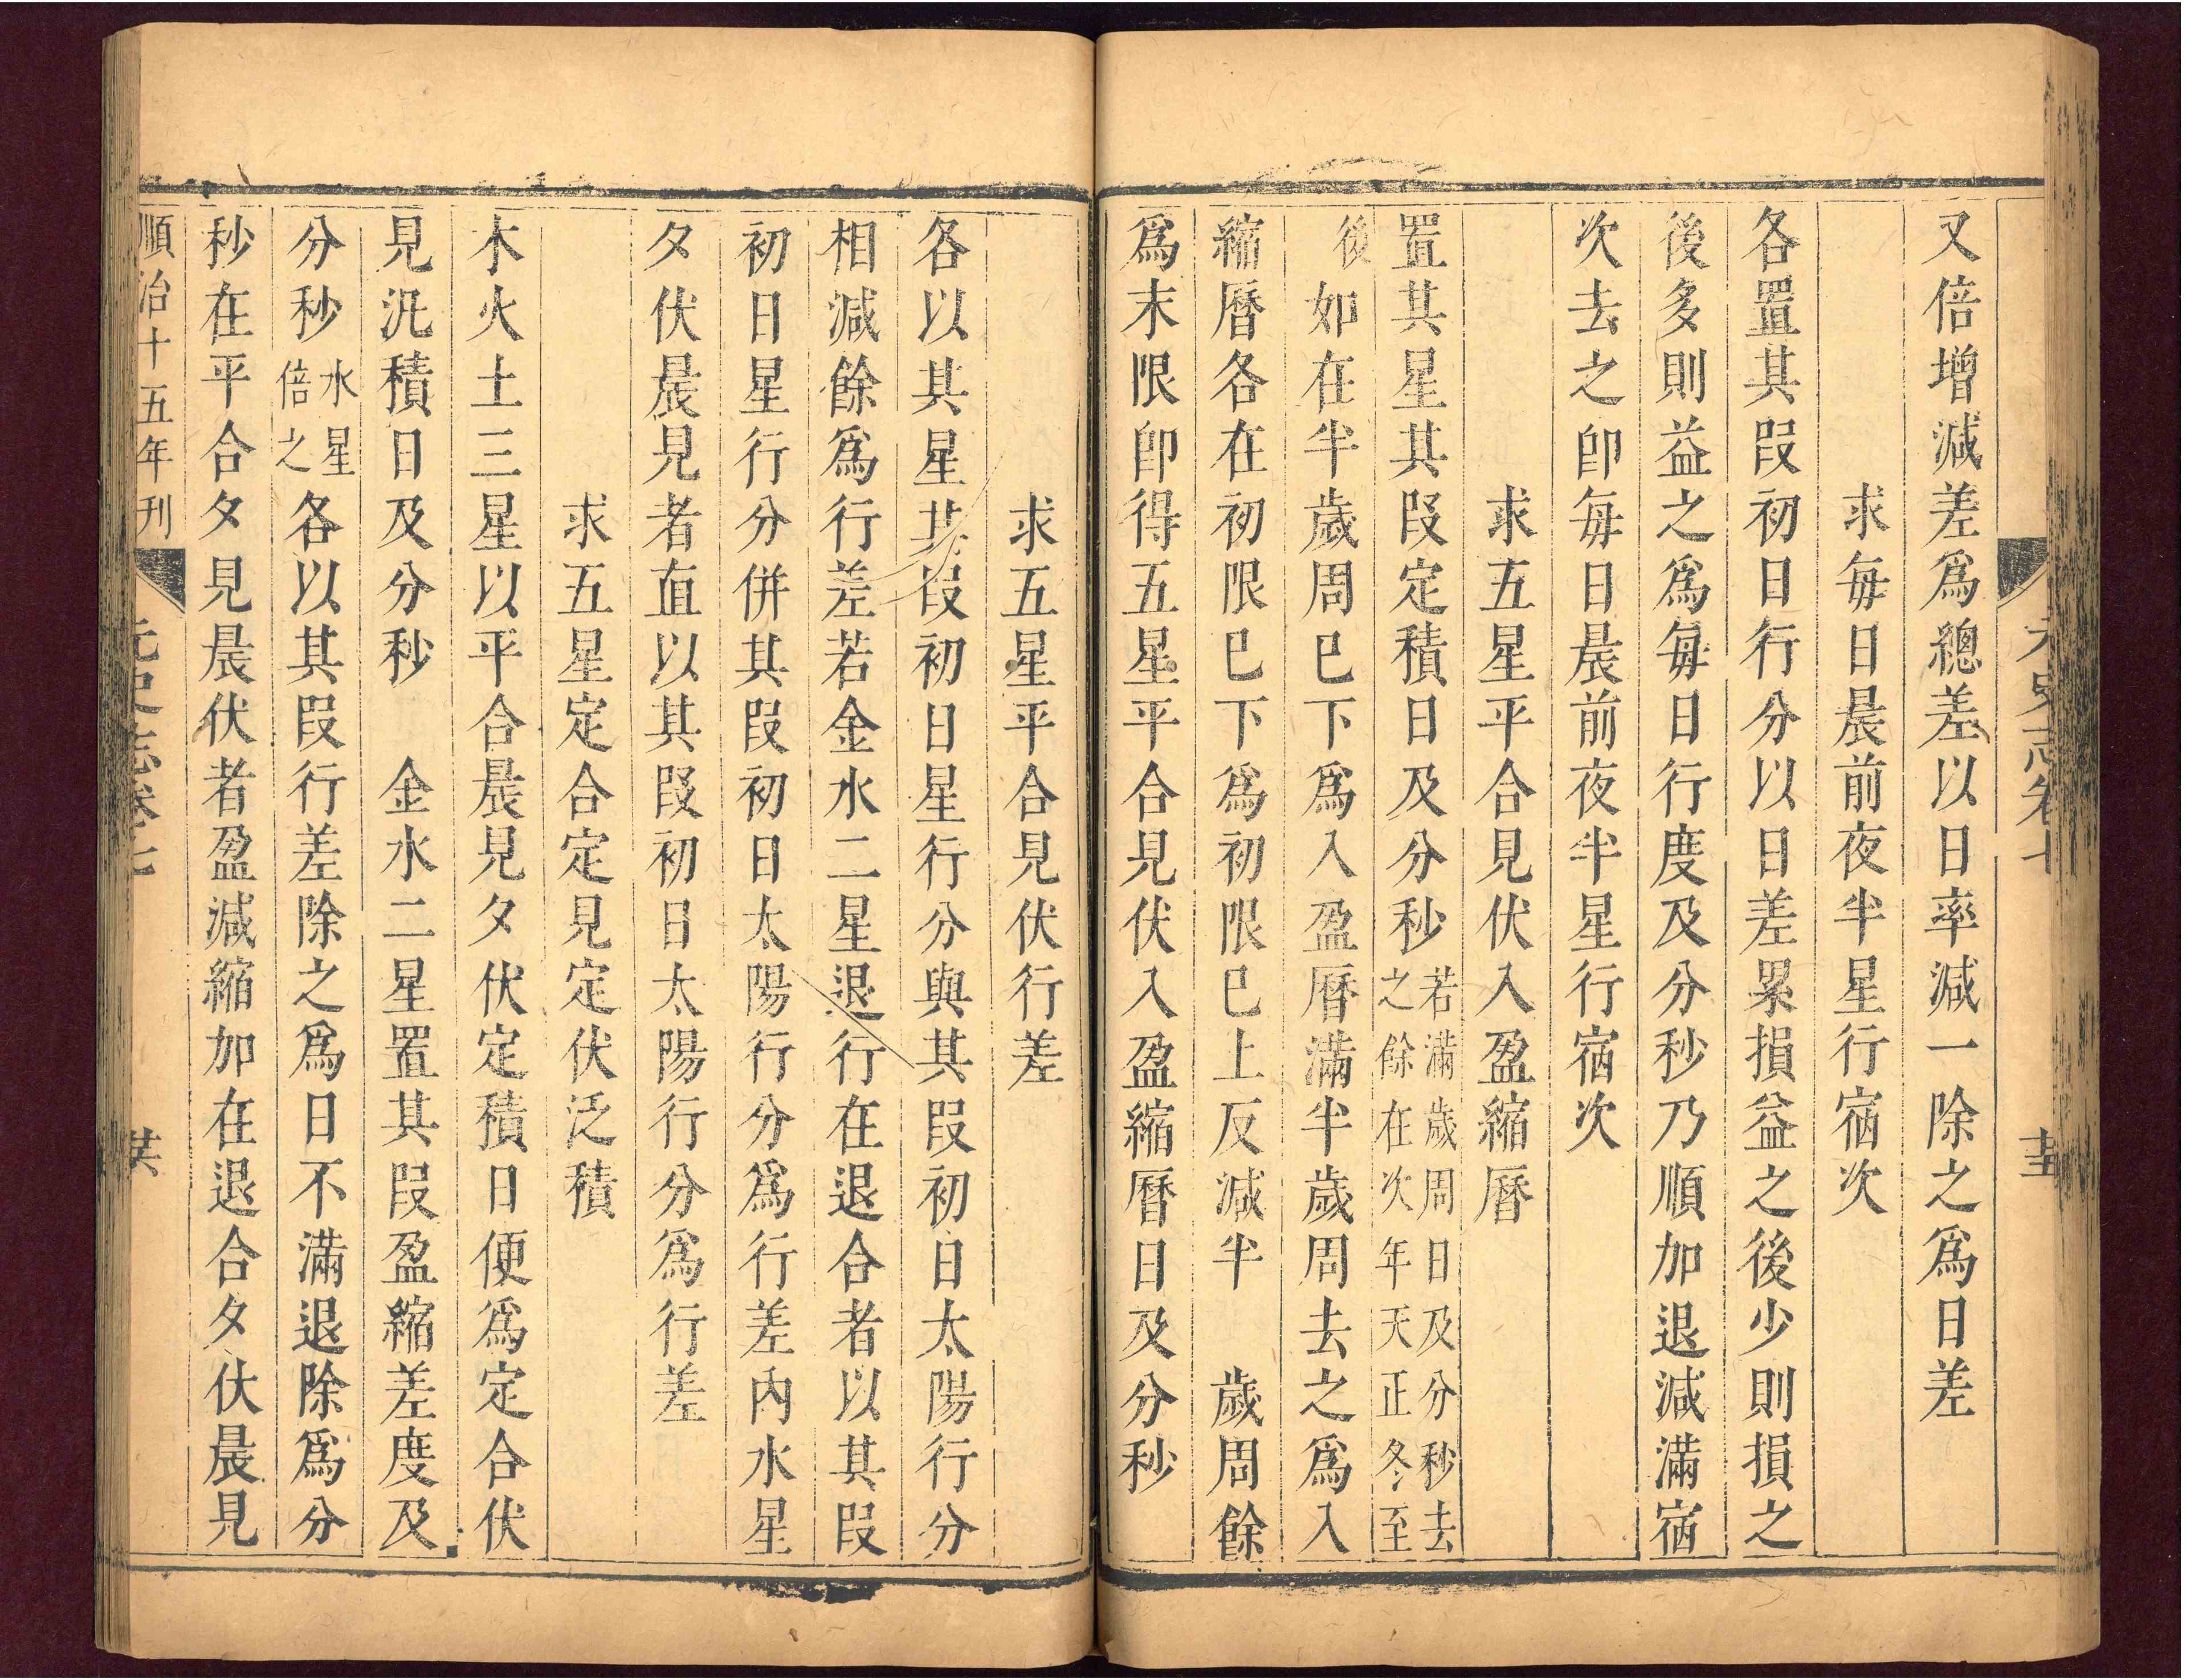 元史志卷七
十五
又倍增減差爲總差以日率減一除之爲日差
求每日晨前夜半星行宿次
各置其段初日行分以日差累損益之後少則損之
後多則益之爲每日行度及分秒乃順加退減滿宿
次去之卽每日晨前夜半星行宿次
求五星平合見伏入盈縮曆
置其星其段定積日及分秒若滿歲周日及分秒去之餘在次年天正冬至
後如在半歲周已下爲入盈曆滿半歲周去之爲入
縮曆各在初限已下爲初限已上反減半歲周餘
爲末限卽得五星平合見伏入盈縮曆日及分秒
求五星平合見伏行差
各以其星其段初日星行分與其段初日太陽行分
相減餘爲行差若金水二星退行在退合者以其段
初日星行分併其段初日太陽行分爲行差內水星
夕伏晨見者直以其段初日太陽行分爲行差
求五星定合定見定伏泛積
木火土三星以平合晨見夕伏定積日便爲定合伏
見汎積日及分秒 金水二星置其段盈縮差度及
分秒水星倍之各以其段行差除之爲日不滿退除爲分
秒在平合夕見晨伏者盈減縮加在退合夕伏晨見
順治十五年刊
元史志卷七